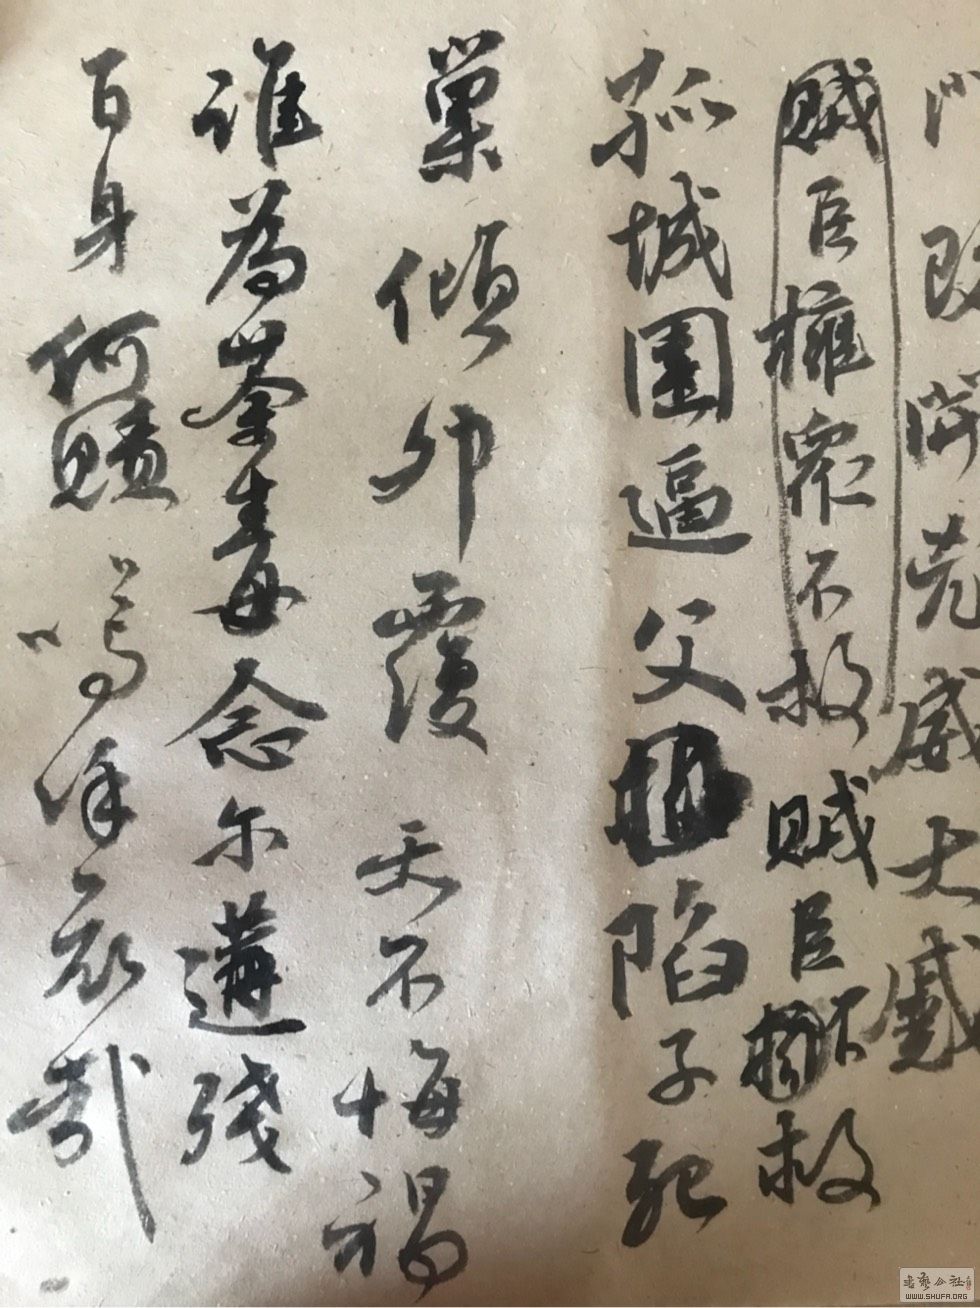 门既開凶威大蹙
賊臣擁衆不救賊臣不救
孤城圍逼父陷子死
巢傾卵覆天不悔禍
誰為荼毒念尔遘殘
百身何贖嗚呼哀哉
書藝公社
WWW.SHUFA.ORG